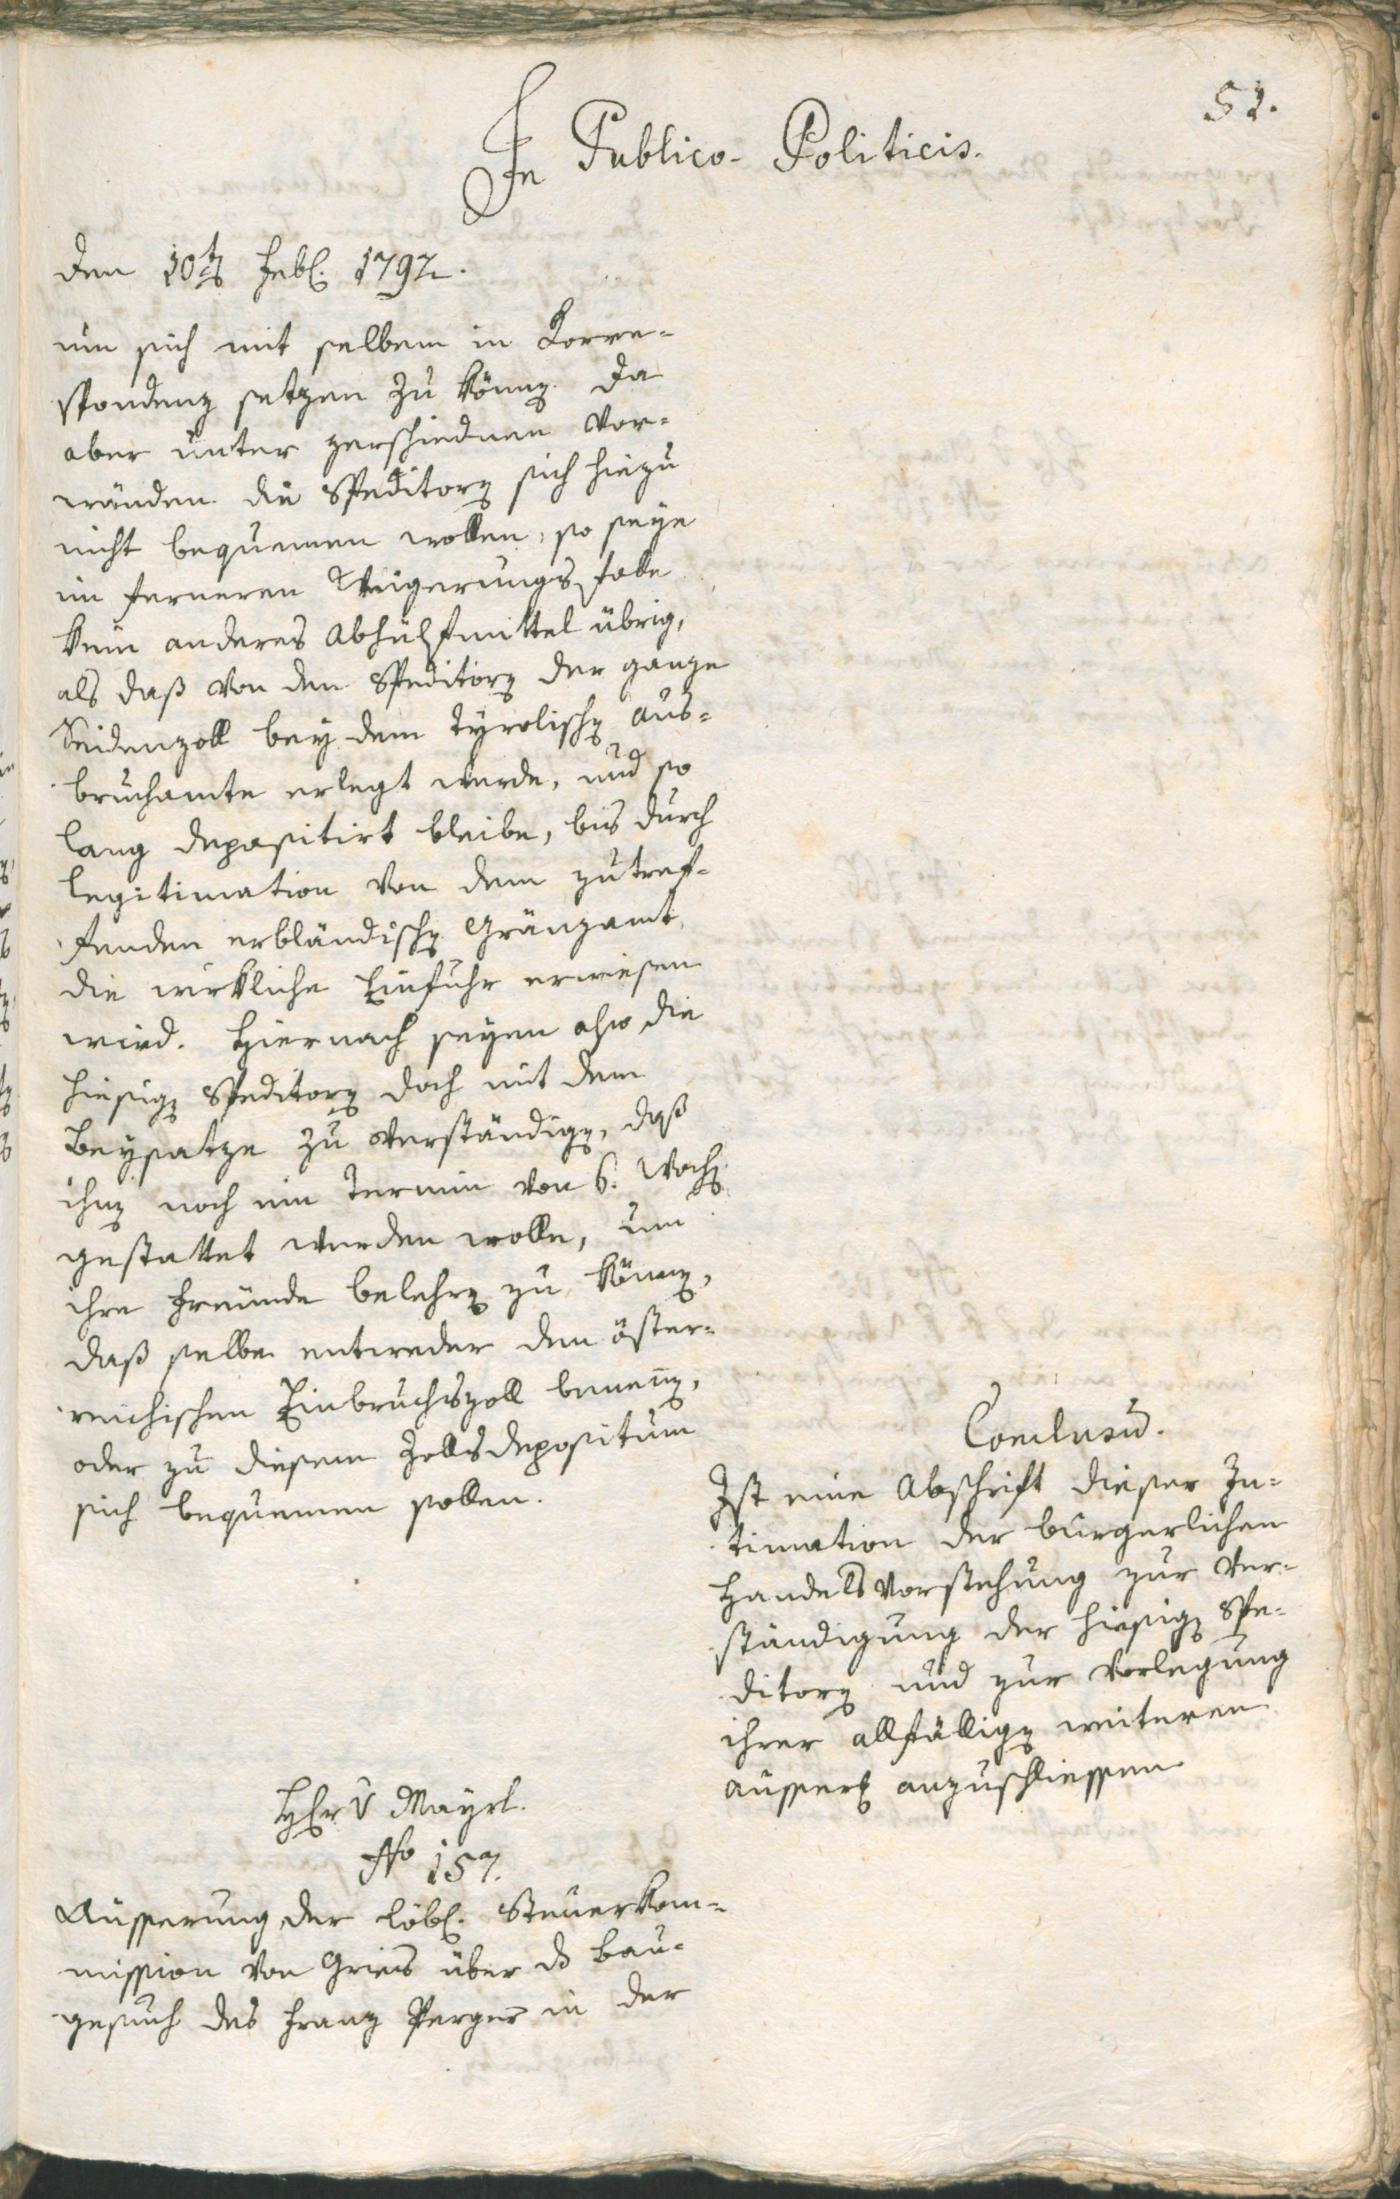 52.
In Publico-Politicis.
den 10ten Febl. 1792.
um sich mit selbem in Korre-
spondenz setzen zu könen. Da
aber unter zerschiednen Vor-
wänden die Speditoren sich hiezu
nicht bequemen wollen, so seye
im ferneren Weigerungsfalle
kein anderes Abhülfmittel übrig,
als daß von den Speditoren der ganze
Seidenzoll bey dem Tyrolischen Aus-
bruchamte erlegt werde, und so
lang depositirt bleibe, bis durch
Legitimation von dem zutref-
fenden erbländischen Gränzamt
die wirkliche Einfuhr erwiesen
wird. Hiernach seyen also die
hiesigen Speditoren doch mit dem
Beysatze zu verständigen, daß
ihnen noch ein Termin von 6. Wochen
gestattet werden wolle, um
ihre Freunde belehren zu könen,
daß selbe entweder den öster-
reichischen Einbruchszoll benenen,
oder zu diesem Zollsdepositum
sich bequemen sollen.
Conclusum.
Ist eine Abschrift dieser In-
timation der bürgerlichen
Handelsvorstehung zur Ver-
ständigung der hiesigen Spe-
ditoren und zur Vorlegung
ihrer allfälligen weiteren
Äusserung anzuschliessen
Herr v Mayrl.
No 157.
Äusserung der löbl. Steuerkom-
mission von Gries über das Bau-
gesuch des Franz Perger in der